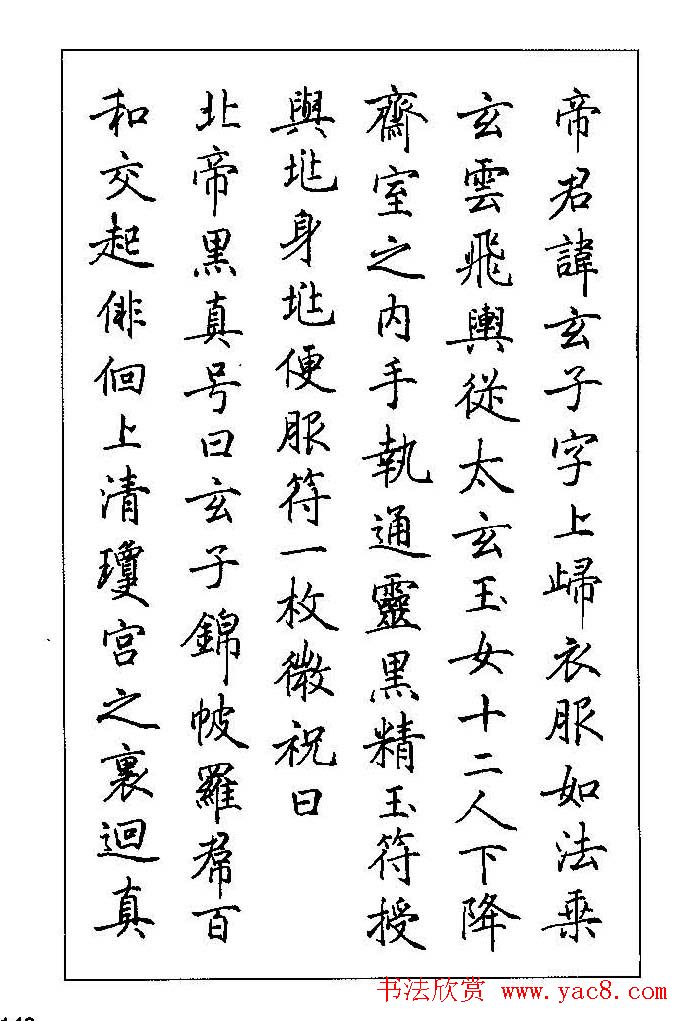 帝君諱玄子字上歸衣服如法乘
玄雲飛輿從太玄玉女十二人下降
齋室之内手執通靈黑精玉符授
與兆身兆便服符一枚微祝曰
北帝黑真号曰玄子錦帔羅帬百
和交起俳佪上清瓊宫之裏迴真
书法欣赏 www.yac8.com